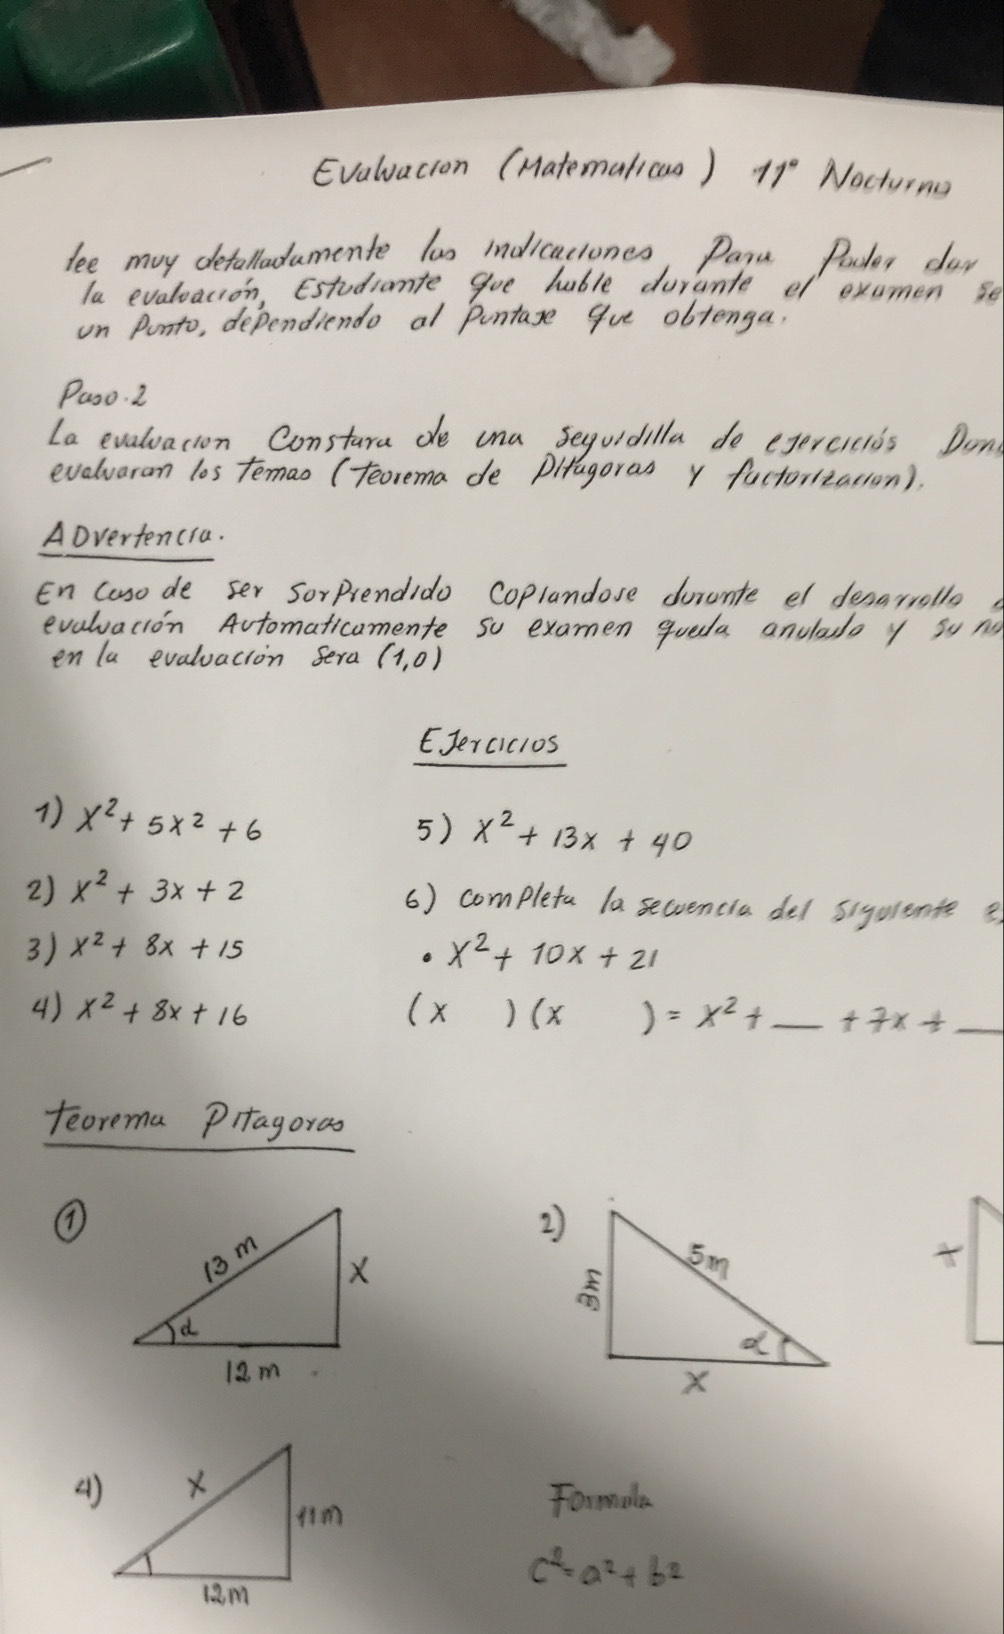 Evaluacion (Matematicas) 11° Nocturno
lee muy detalladamente las indicaciones Para Poder dar
la evaluación, Estudiante que hable durante el examen se
un Punto, dependiendo al Puntaje que obtenga.
Paso.2
La evaluacion Constara de una seguidilla de ejercicios
evaluaran los temas (Teorema de Pitagoras y factorizacion).
ADvertencia.
En Caso de ser SorPrendido Copiandose durante el desarrollo
evaluación Automaticamente su examen queda anulado y su
en la evaluación Sera (1,0)
EJercicios
1) X² + 5X² + 6
5) X² + 13x + 40
2) X² + 3X + 2
6) comPleta la secuencia del siguiente
3) X² + 8x + 15
• X² + 10X + 21
4) X² + 8x + 16
(X ) (X ) = X² + __ + 7x + __
Teorema Pitagoras
1
13 m
X
α
12 m
2)
5m
3m
α
X
4)
X
11m
12m
Formula
C² = a² + b²